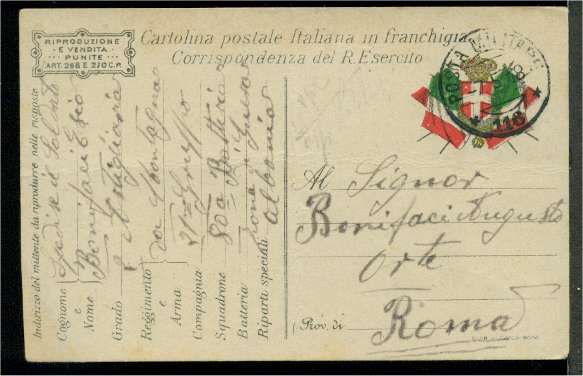 RIPRODUZIONE
E VENDITA
PUNITE
ART. 268 E 270 C.P.
Cartolina postale Italiana in franchigia
Corrispondenza del R. Esercito
POSTA MILITARE
18
* 116 *
Al Signor
Bonifaci Augusto
Orte
Prov. di Roma
Indirizzo del mittente da riprodurre nelle risposte
Cognome
e Bonifaci
Nome
Grado Artiglieria
Reggimento da Montagna
e
Arma Gruppo
Compagnia
Squadrone 80a Batteria
Batteria Zona
Riparti speciali Albania